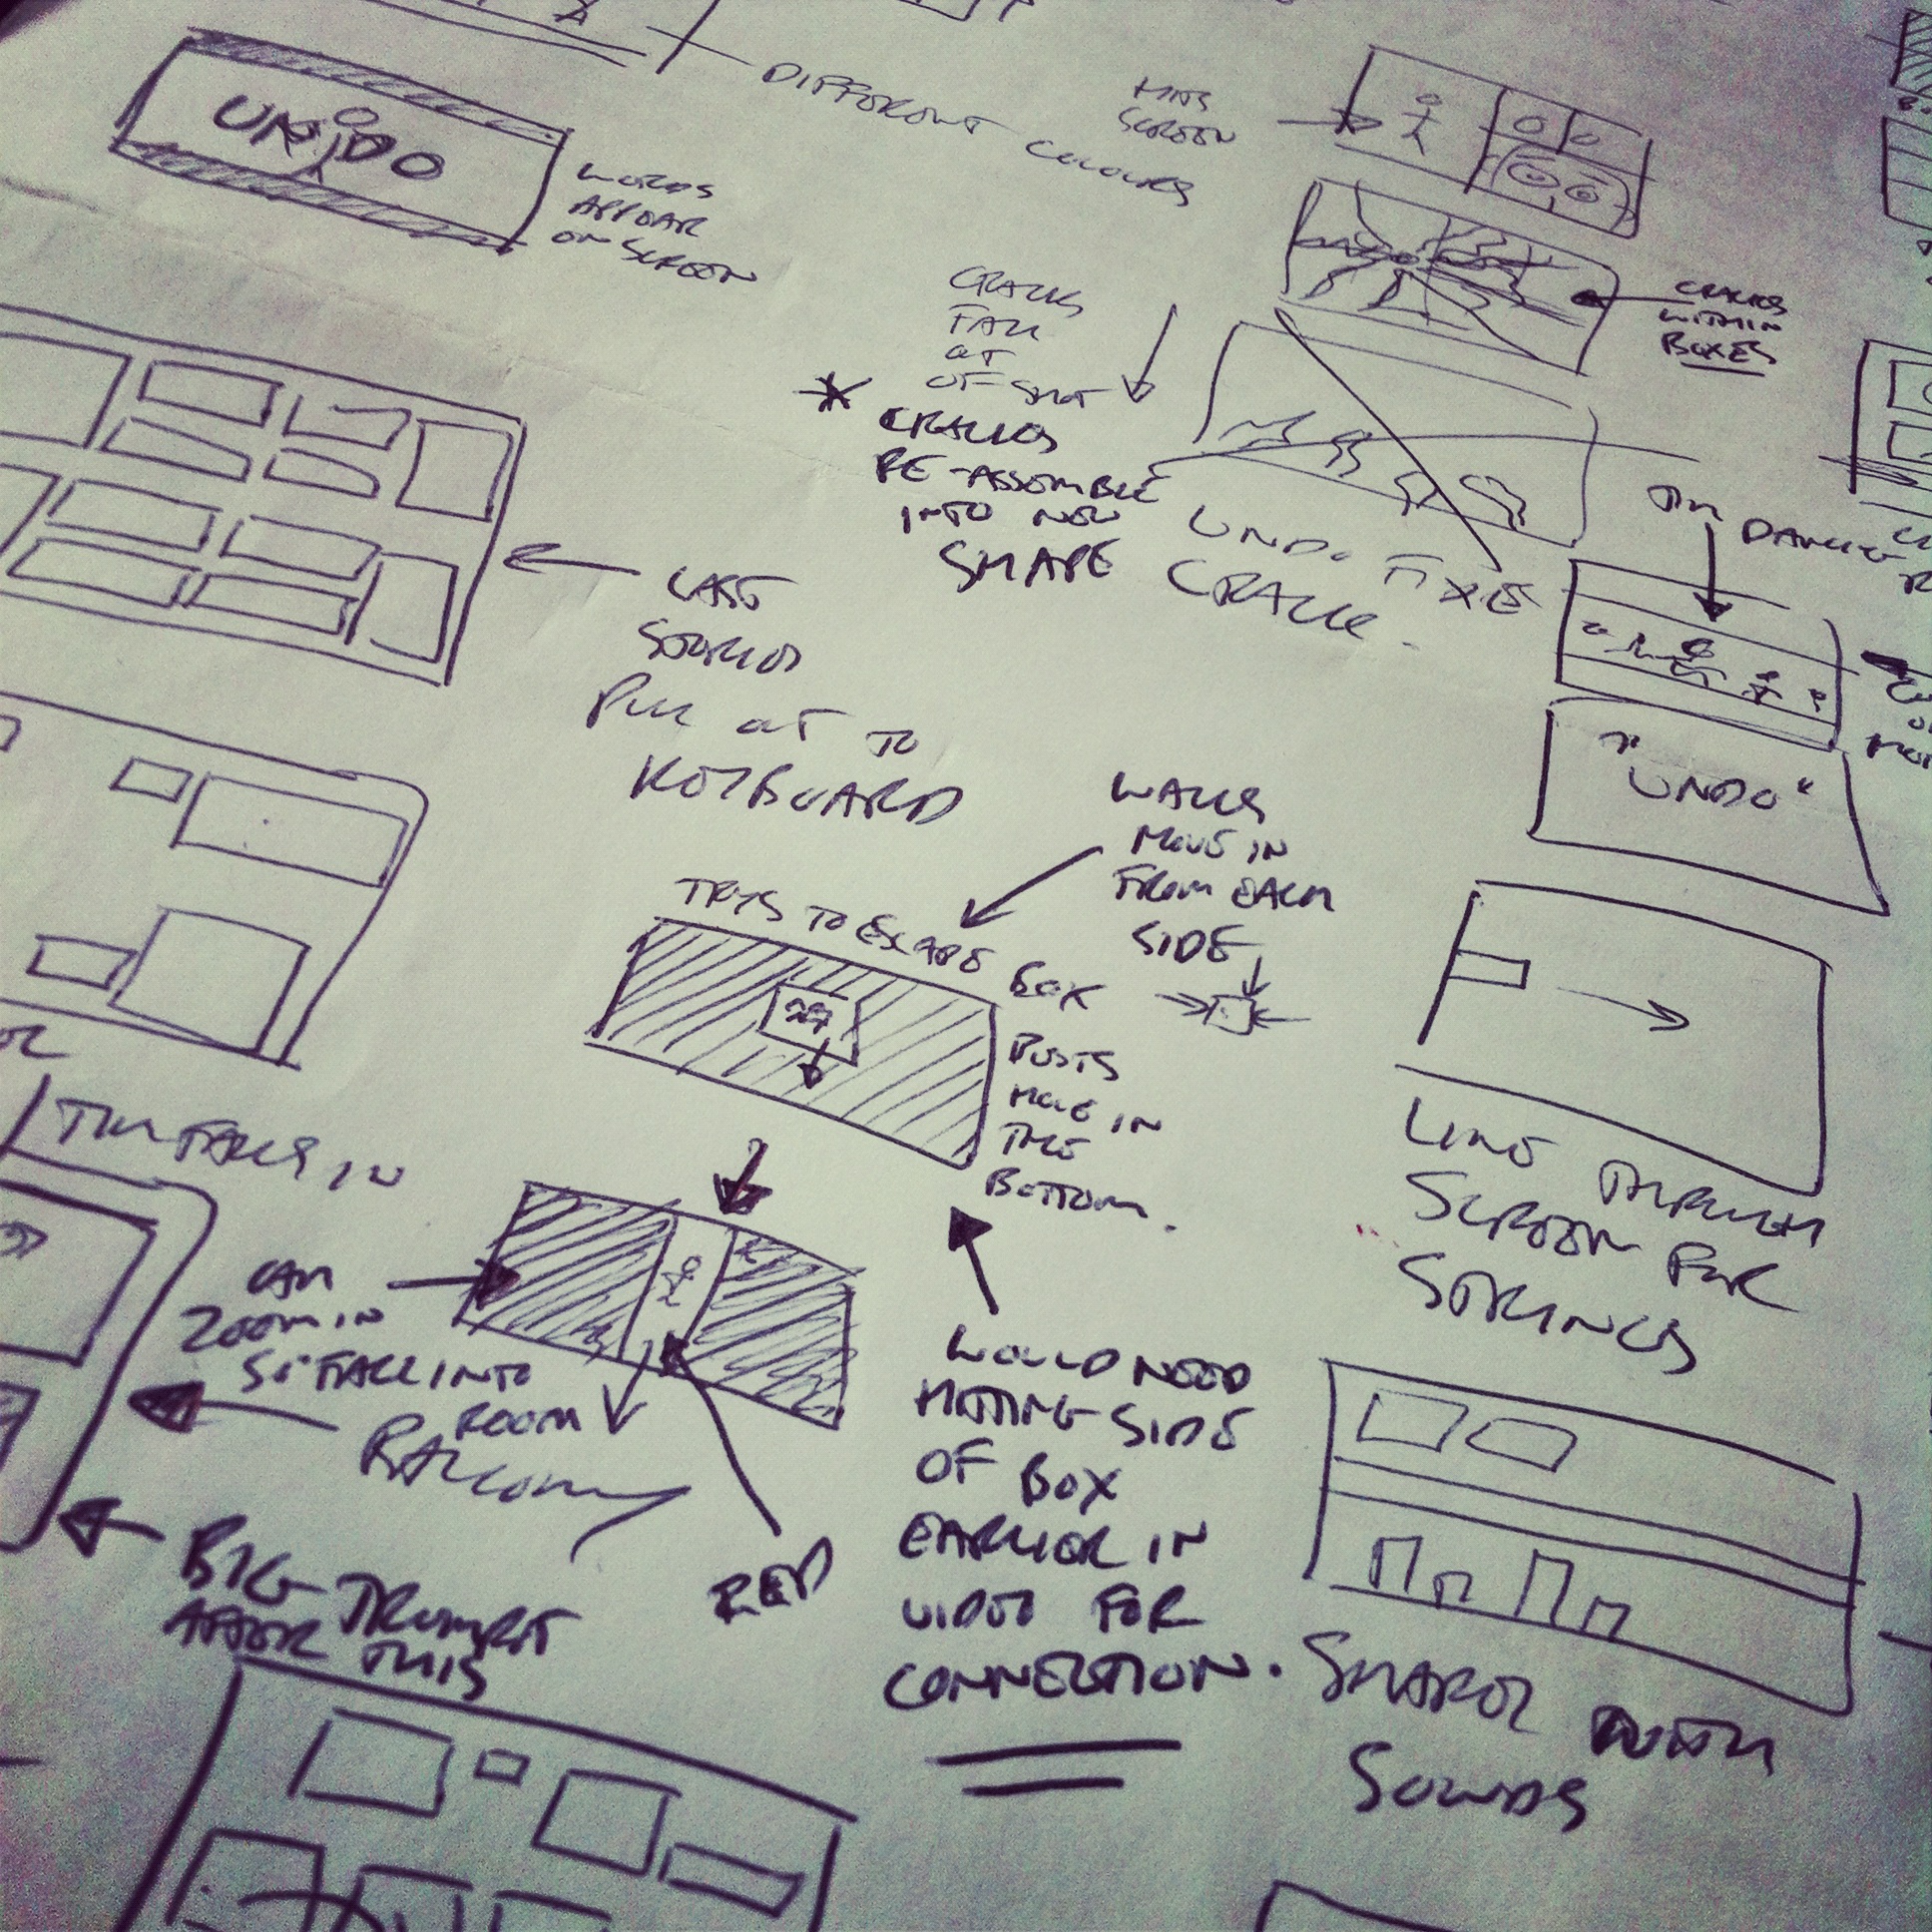 DIFFERENT COLOURS
UNDO
WORDS
APPEAR
ON SCREEN
HITS
SCREEN
CRACKS
WITHIN
BOXES
CRACKS
FALL
OFF SHOT
CRACKS
RE-ASSEMBLE
INTO NEW
SHAPE
UNDO FIXES
CRACK.
TIM
"UNDO"
LAST
SECOND
PULL OUT TO
KEYBOARD
WALLS
MOVE IN
FROM EACH
SIDE
TRYS TO ESCAPE BOX
BUSTS
HOLE IN
THE
BOTTOM.
LINE THROUGH
SCREEN FOR
STRINGS
TIM FALLS IN
CAM
ZOOM IN
SO FALL INTO
ROOM
RED
WOULD NEED
HITTING SIDE
OF BOX
EARLIER IN
VIDEO FOR
CONNECTION.
BIG TRUMPET
AFTER THIS
SHAPES WITH
SOUNDS